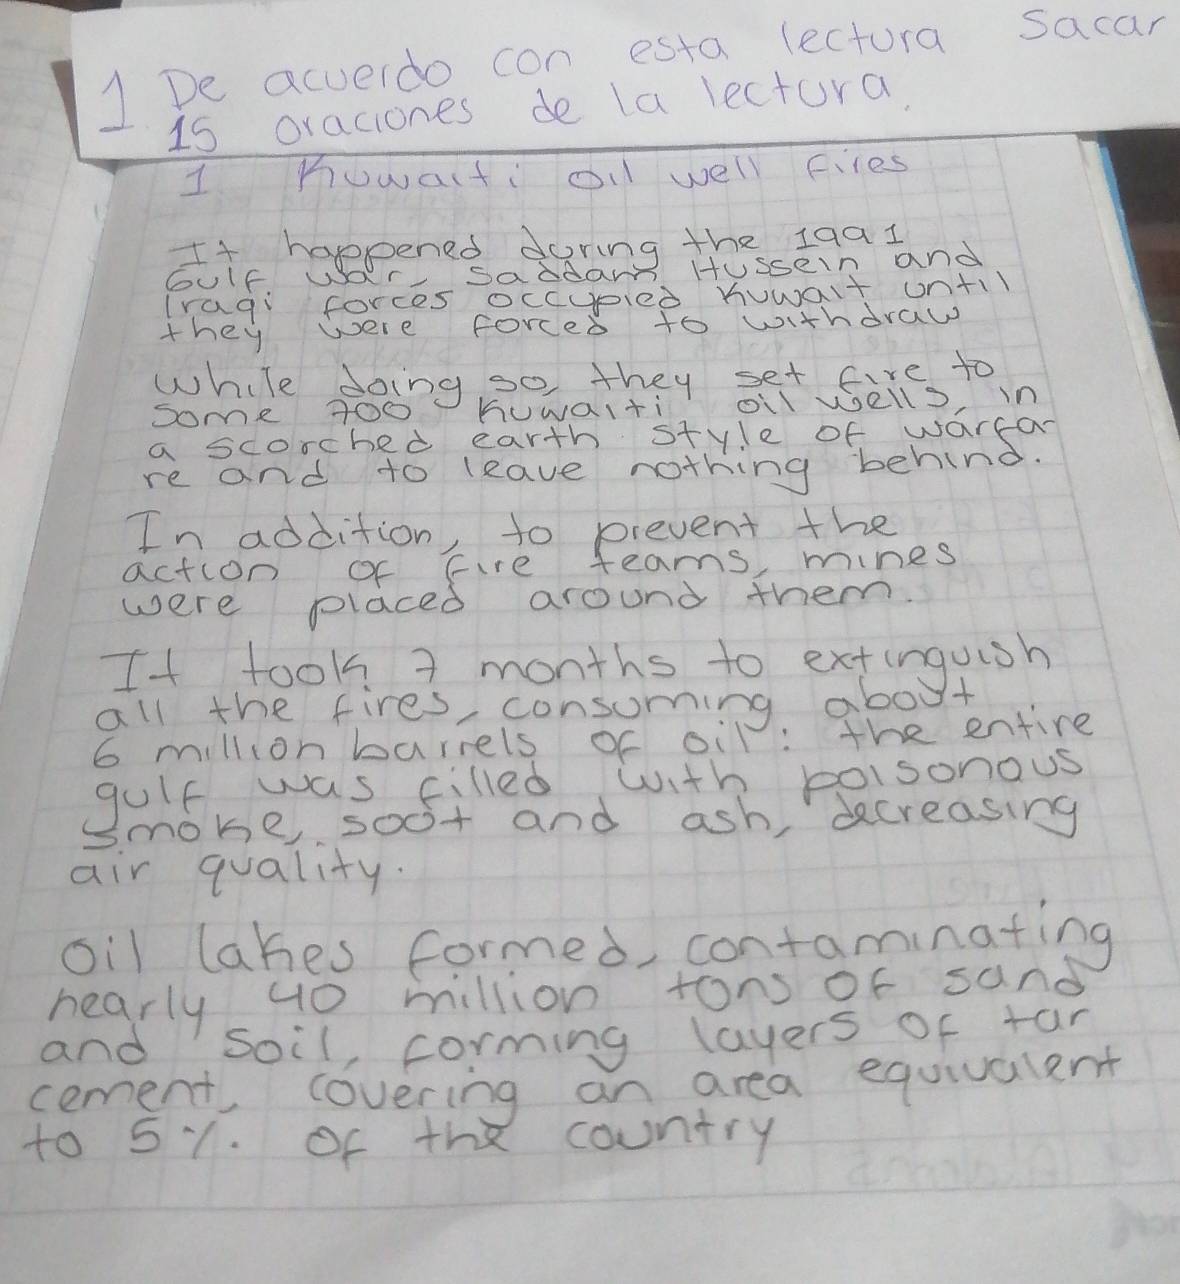 1 De acuerdo con esta lectura Sacar
15 oraciones de la lectura.
1 Kuwaiti oil well fires
It happened during the 1991
Gulf war, Saddam Hussein and
Iraqi forces occupied Kuwait until
they were forced to withdraw
While doing so, they set fire to
some 700 Kuwaiti oil wells, in
a scorched earth style of warfa
re and to leave nothing behind.
In addition, to prevent the
action of fire teams, mines
were placed around them.
It took 7 months to extinguish
all the fires, consuming about
6 million barrels of oil: the entire
gulf was filled with poisonous
smoke, soot and ash, decreasing
air quality.
Oil lakes formed, contaminating
nearly 40 million tons of sand
and soil, forming layers of tar
cement, covering an area equivalent
to 5%. of the country